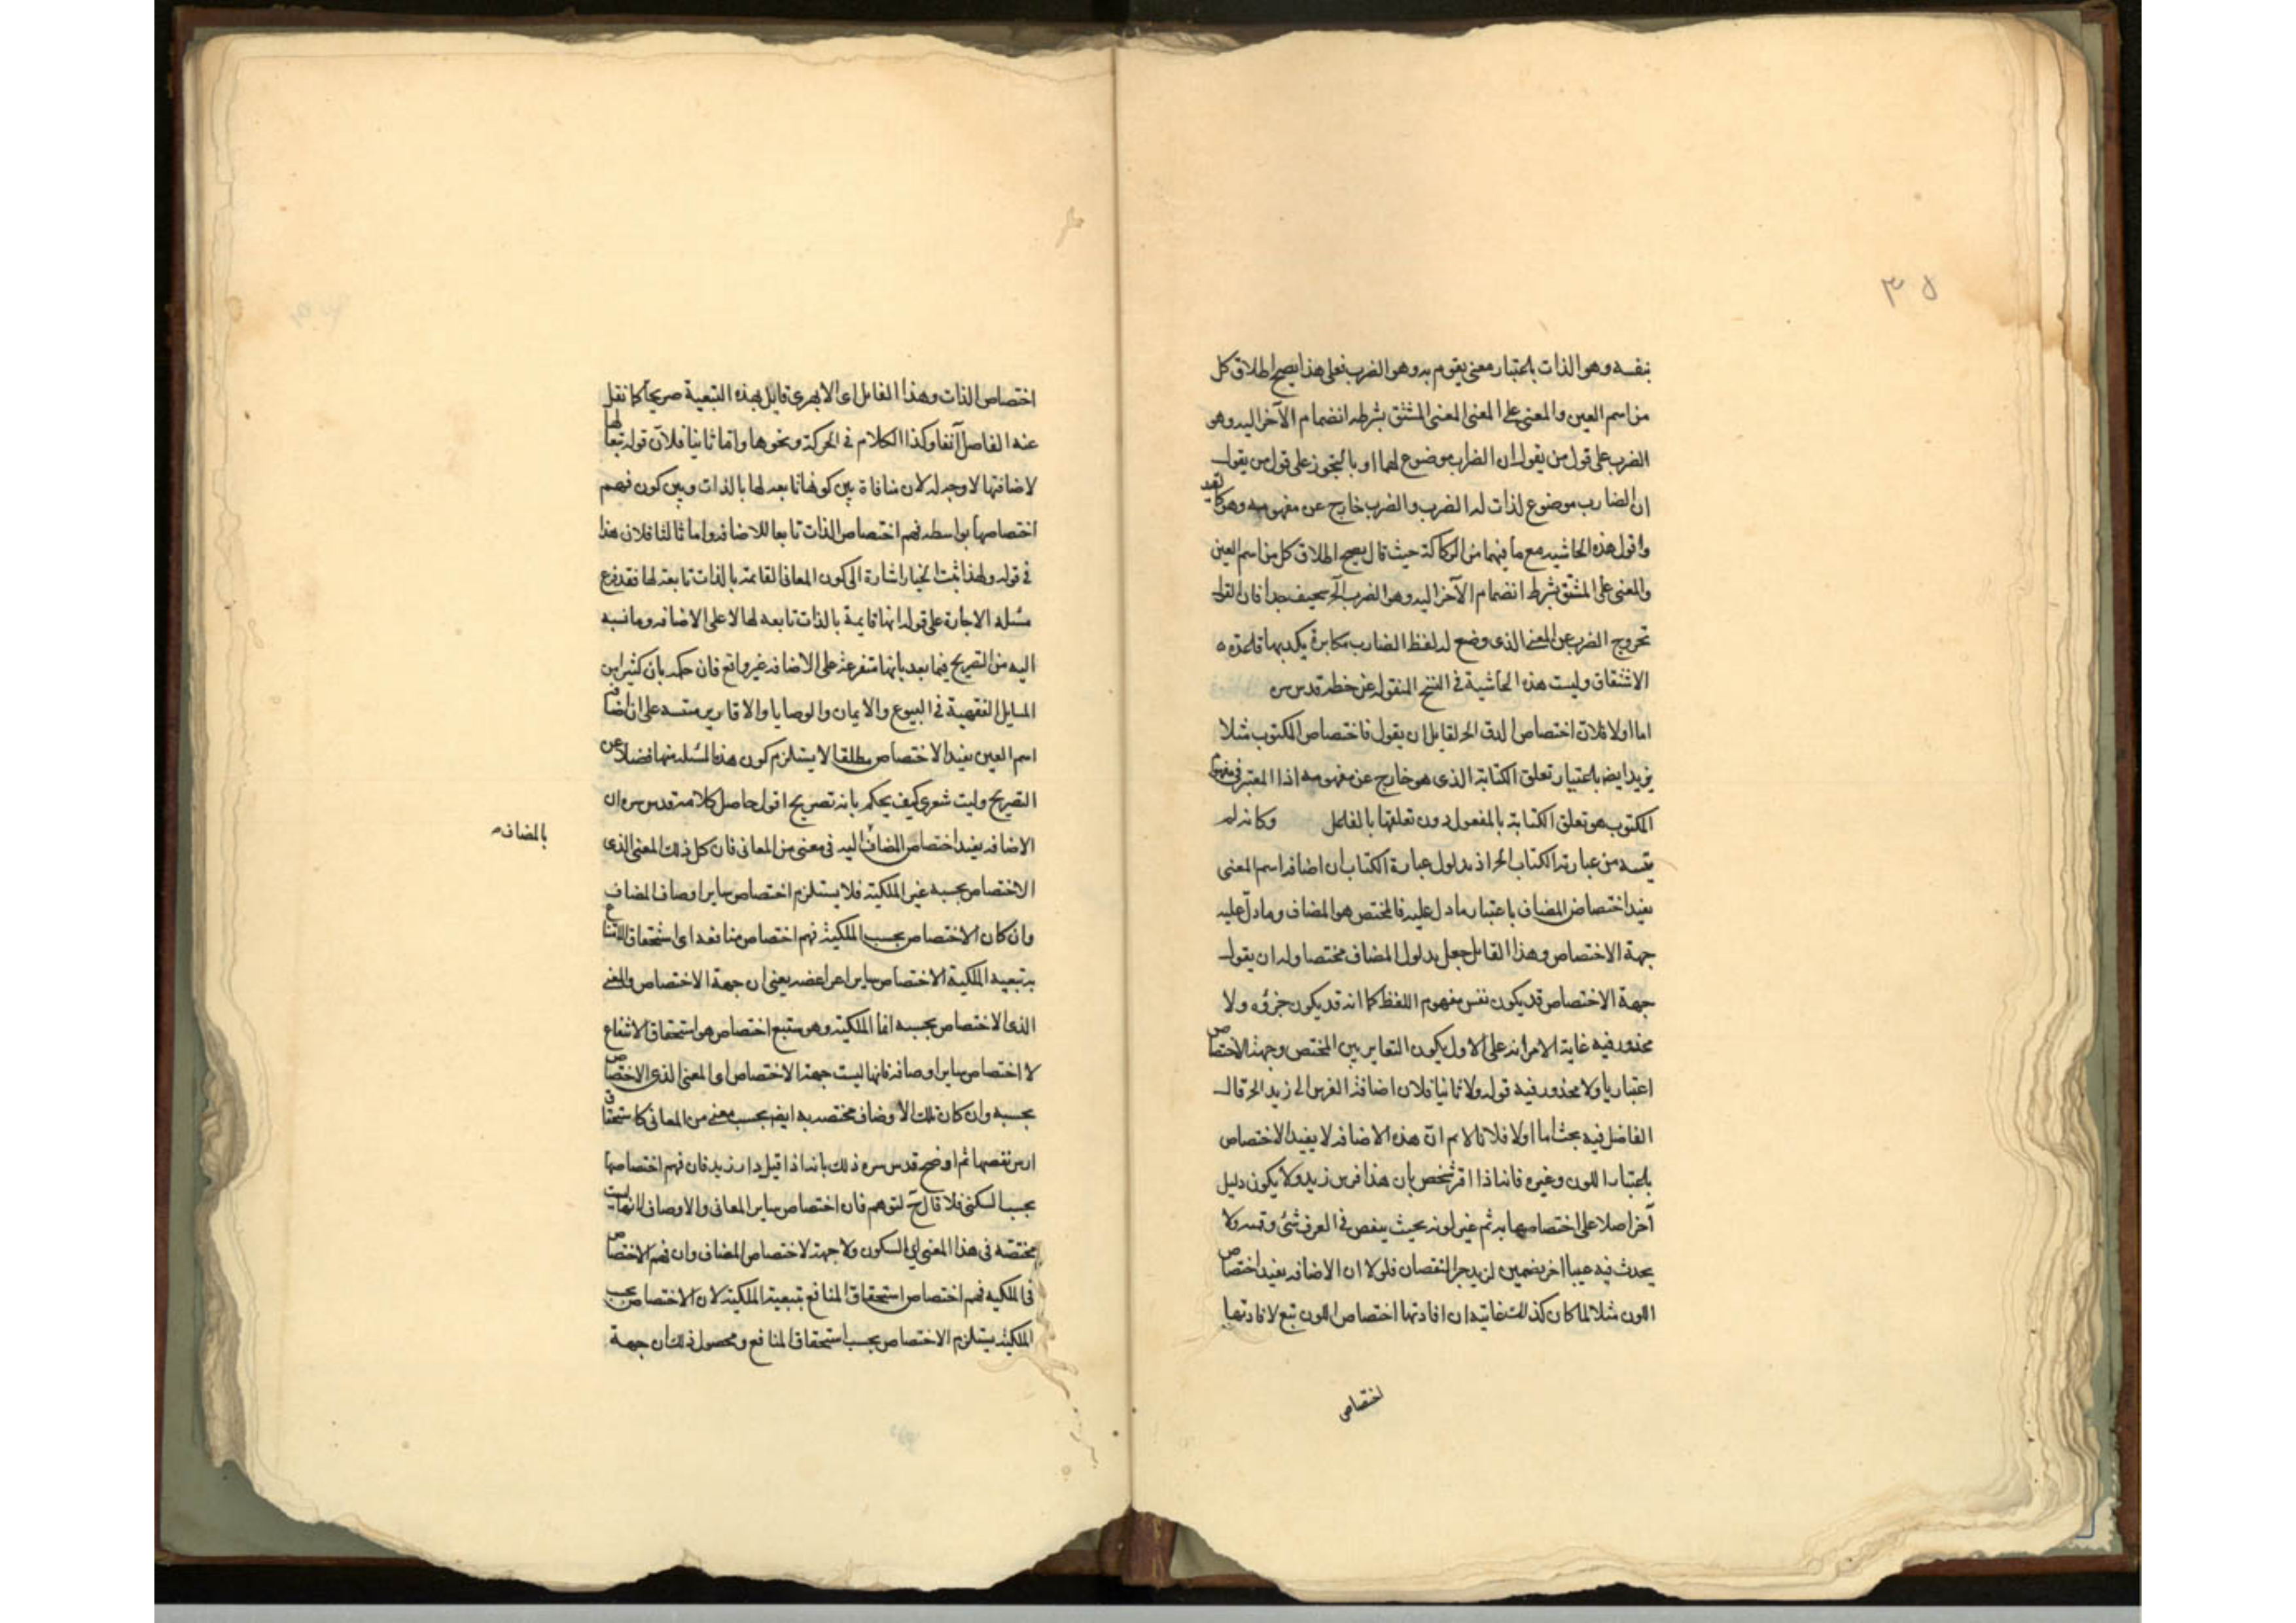 ٣٨
بنفسه وهو الذات باعتبار معنى يقوم به وهو الضرب فعلى هذا يصح اطلاق كل
من اسم العين والمعنى على المعنى المشتق بشرط انضمام الآخر اليه وهو
الضرب على قول من يقول ان الضارب موضوع لهما او بالتجوز على قول من يقول
ان الضارب موضوع لذات له الضرب والضرب خارج عن مفهومه وهو
واقول هذه الحاشيه مع ما فيهما من الركاكة حيث قال يصح اطلاق كل من اسم العين
والمعنى على المشتق بشرط انضمام الآخر اليه وهو الضرب الخ سخيف جدا فان القول
بخروج الضرب عن المعنى الذى وضع له لفظ الضارب مكابرة يكذبها قاعدة
الاشتقاق وليست هذه الحاشية فى النسخ المنقوله عن خطه قدس سره
اما اولا فلان اختصاص الدق الخ لقايل ان يقول فاختصاص المكتوب مثلا
بزيد ايضا باعتبار تعلق الكتابة الذى هو خارج عن مفهومه اذا المعتبر فى مفهوم
المكتوب هو تعلق الكتابة بالمفعول دون تعلقها بالفاعل وكانه لم
من عبارة الكتاب الخ اذ مدلول عبارة الكتاب ان اضافه اسم المعنى
يفيد اختصاص المضاف باعتبار ما دل عليه فالمختص هو المضاف وما دل عليه
جهة الاختصاص وهذا القايل جعل مدلول المضاف مختصا وله ان يقول
جهة الاختصاص قد يكون نفس مفهوم اللفظ كما انه قد يكون جزؤه ولا
محذور فيه غاية الامر انه على الاول يكون التغاير بين المختص وجهة الاختصاص
اعتباريا ولا محذور فيه قوله ولا ثانيا فلان اضافة الفرس الى زيد الخ قال
الفاضل فيه بحث اما اولا فلانا لا نم ان هذه الاضافه لا يفيد الاختصاص
باعتبار اللون وغيره فانه اذا اقر شخص بان هذا فرس زيد ولا يكون دليل
آخر اصلا على اختصاصها به ثم غير لونه بحيث ينقص فى العرف شئ وقيمه ولا
يحدث فيه عيبا اخر يضمن لزيد جبر النقصان فلولا ان الاضافه يفيد اختصاص
اللون مثلا لما كان كذلك غايته ان افادتها اختصاص اللون تبع لافادتها
اختصاص
اختصاص الذات وهذا الفاضل اى الابهرى قايل بهذه التبعية صريحا كما نقل
عنه الفاضل آنفا وكذا الكلام فى الحركة ونحوها واما ثانيا فلان قوله تبعا لها
لاضافتها لا وجه له لان منافاة بين كونها تابعه لها بالذات وبين كون فهم
اختصاصها بواسطه فهم اختصاص الذات تابعا للاضافه واما ثالثا فلان هذا
فى قوله ولهذا ثبت الخيار اشارة الى كون المعانى القائمة بالذات تابعة لها فقد فرع
مسئله الاجارة على قوله انها قايمة بالذات تابعه لها لا على الاضافه وما نسبه
اليه من التصريح فيما بعد بانها متفرعة على الاضافه غير واقع فان حكمه بان كثيرا من
المسايل الفقهية فى البيوع والايمان والوصايا والاقارير مستند على ان اضافة
اسم العين يفيد الاختصاص مطلقا لا يستلزم كون هذه المسئله منها فضلا عن
التصريح وليت شعرى كيف يحكم بانه تصريح اقول حاصل كلامه قدس سره ان
الاضافه يفيد اختصاص المضاف اليه فى معنى من المعانى فان كل ذلك المعنى الذى
بالمضاف
الاختصاص بحسبه غير الملكية فلا يستلزم اختصاص ساير اوصاف المضاف
وان كان الاختصاص بحسب الملكية فهم اختصاص منافعه اى استحقاق الانتفاع
به تبعيه الملكية الاختصاص ساير اعراضه يعنى ان جهة الاختصاص والمعنى
الذى الاختصاص بحسبه انما الملكية وهو يستتبع اختصاص هو استحقاق الانتفاع
لا اختصاص ساير اوصافه فانها ليست جهة الاختصاص او المعنى الذى الاختصاص
بحسبه وان كان تلك الاوصاف مختصه به ايضا بحسب معنى من المعانى كاستحقاق
ارش نقصها ثم اوضح قدس سره ذلك بانه اذا قيل دار زيد فان فهم اختصاصها
بحسب السكنى فلا قال لتوهم فان اختصاص ساير المعانى والاوصاف لانها ليست
مختصه فى هذا المعنى اى السكون ولا جهة لاختصاص المضاف وان فهم الاختصاص
فى الملكيه فهم اختصاص استحقاق المنافع تبعية الملكية لان الاختصاص بحسب
الملكية يستلزم الاختصاص بحسب استحقاق المنافع ومحصول ذلك ان جهة